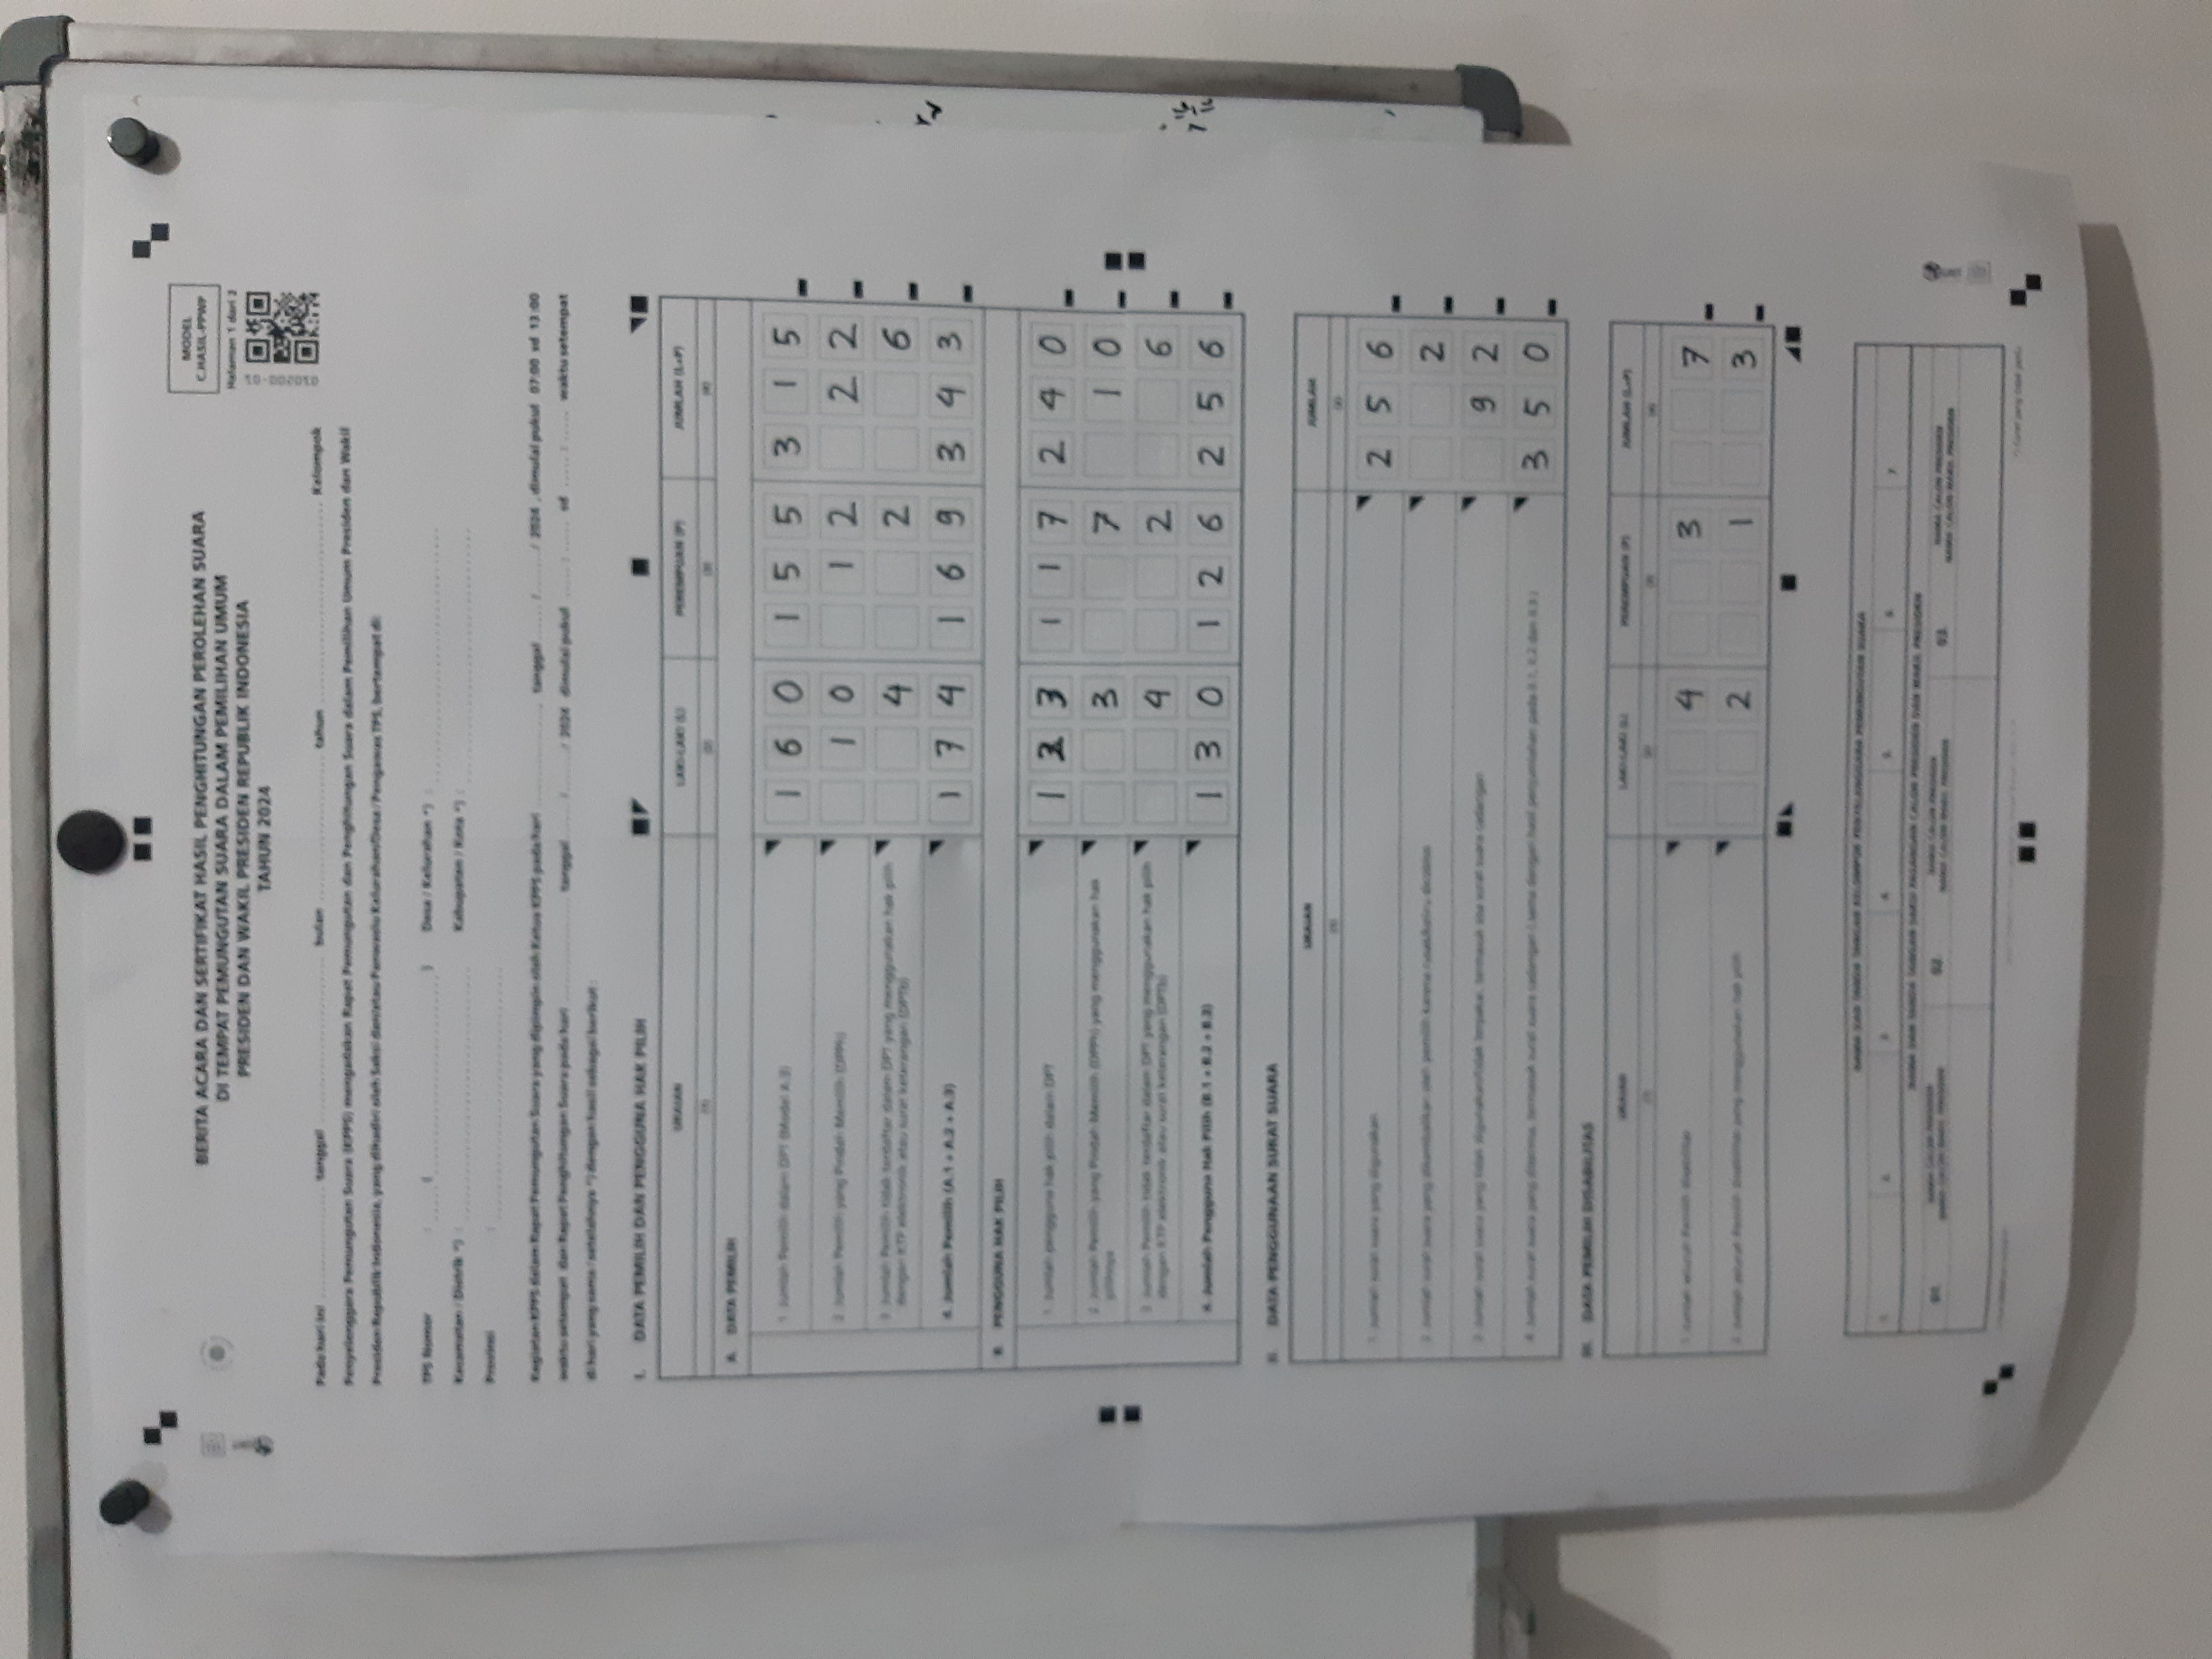 BERITA ACARA DAN SERTIFIKAT HASIL PENGHITUNGAN PEROLEHAN SUARA
DI TEMPAT PEMUNGUTAN SUARA DALAM PEMILIHAN UMUM
PRESIDEN DAN WAKIL PRESIDEN REPUBLIK INDONESIA
TAHUN 2024
MODEL
C.HASIL-PPWP
Halaman 1 dari 2
Pada hari ini .......... tanggal .......... bulan .......... tahun .......... Kelompok
Penyelenggara Pemungutan Suara (KPPS) mengadakan Rapat Pemungutan dan Penghitungan Suara dalam Pemilihan Umum Presiden dan Wakil
Presiden Republik Indonesia, yang dihadiri oleh Saksi dan/atau Panwaslu Kelurahan/Desa/Pengawas TPS, bertempat di:
TPS Nomor : ..... (..........) Desa / Kelurahan *) : ..........
Kecamatan / Distrik *) : .......... Kabupaten / Kota *) : ..........
Provinsi : ..........
Kegiatan KPPS dalam Rapat Pemungutan Suara yang dipimpin oleh Ketua KPPS pada hari .........., tanggal ....../......./ 2024 , dimulai pukul 07:00 sd 13:00
waktu setempat dan Rapat Penghitungan Suara pada hari .......... tanggal ....../......./ 2024 dimulai pukul ..... : ..... sd ..... : ..... waktu setempat
di hari yang sama / setelahnya *) dengan hasil sebagai berikut :
I. DATA PEMILIH DAN PENGGUNA HAK PILIH
URAIAN LAKI-LAKI (L) PEREMPUAN (P) JUMLAH (L+P)
(1) (2) (3) (4)
A. DATA PEMILIH
1. Jumlah Pemilih dalam DPT (Model A.3) 160 155 315
2. Jumlah Pemilih yang Pindah Memilih (DPPh) 10 12 22
3. Jumlah Pemilih tidak terdaftar dalam DPT yang menggunakan hak pilih
dengan KTP elektronik atau surat keterangan (DPTb) 4 2 6
4. Jumlah Pemilih (A.1 + A.2 + A.3) 174 169 343
B. PENGGUNA HAK PILIH
1. Jumlah pengguna hak pilih dalam DPT 123 117 240
2. Jumlah Pemilih yang Pindah Memilih (DPPh) yang menggunakan hak
pilihnya 3 7 10
3. Jumlah Pemilih tidak terdaftar dalam DPT yang menggunakan hak pilih
dengan KTP elektronik atau surat keterangan (DPTb) 4 2 6
4. Jumlah Pengguna Hak Pilih (B.1 + B.2 + B.3) 130 126 256
II. DATA PENGGUNAAN SURAT SUARA
URAIAN JUMLAH
1. Jumlah surat suara yang digunakan 256
2. Jumlah surat suara yang dikembalikan oleh pemilih karena rusak/keliru dicoblos 2
3. Jumlah surat suara yang tidak digunakan/tidak terpakai, termasuk sisa surat suara cadangan 92
4. Jumlah surat suara yang diterima, termasuk surat suara cadangan ( sama dengan hasil penjumlahan pada II.1, II.2 dan II.3 ) 350
III. DATA PEMILIH DISABILITAS
URAIAN LAKI-LAKI (L) PEREMPUAN (P) JUMLAH (L+P)
1. Jumlah seluruh Pemilih disabilitas 4 3 7
2. Jumlah seluruh Pemilih disabilitas yang menggunakan hak pilih 2 1 3
NAMA DAN TANDA TANGAN KELOMPOK PENYELENGGARA PEMUNGUTAN SUARA
1. 2. 3. 4. 5. 6. 7.
NAMA DAN TANDA TANGAN SAKSI PASANGAN CALON PRESIDEN DAN WAKIL PRESIDEN
01. NAMA CALON PRESIDEN 02. NAMA CALON PRESIDEN 03. NAMA CALON PRESIDEN
NAMA CALON WAKIL PRESIDEN NAMA CALON WAKIL PRESIDEN NAMA CALON WAKIL PRESIDEN
*) Coret yang tidak perlu